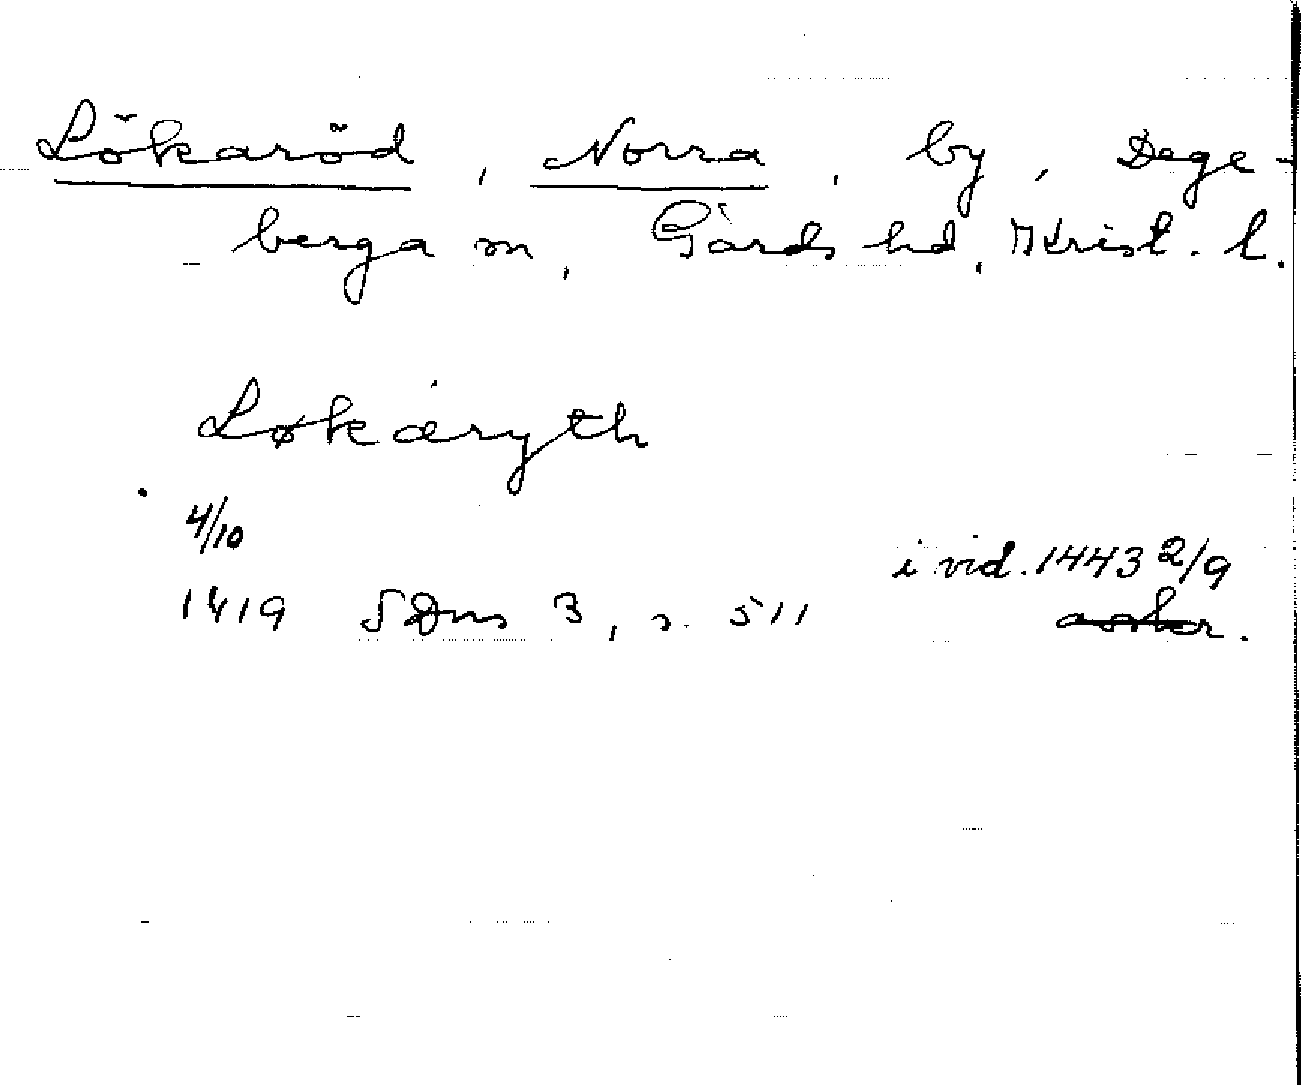 Lökaröd, Norra, by, Dege-
berga sn, Gärds hd, Krist. l.
Løkæryth
4/10
i vid. 1443 2/9
1419 SDns 3, s. 511